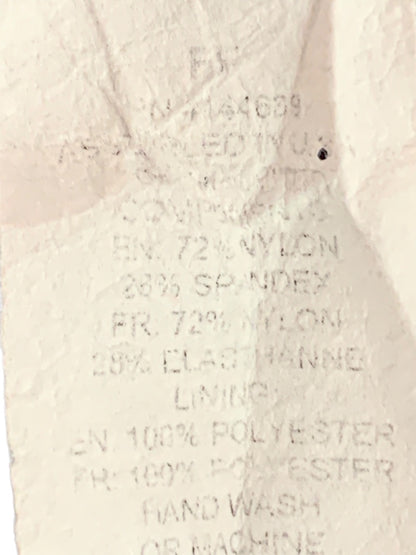 RN #144659
ASSEMBLED IN U.S.A
COMPONENTS
EN: 72% NYLON
28% SPANDEX
FR: 72% NYLON
28% ELASTHANNE
LINING:
EN: 100% POLYESTER
FR: 100% POLYESTER
HAND WASH
OR MACHINE